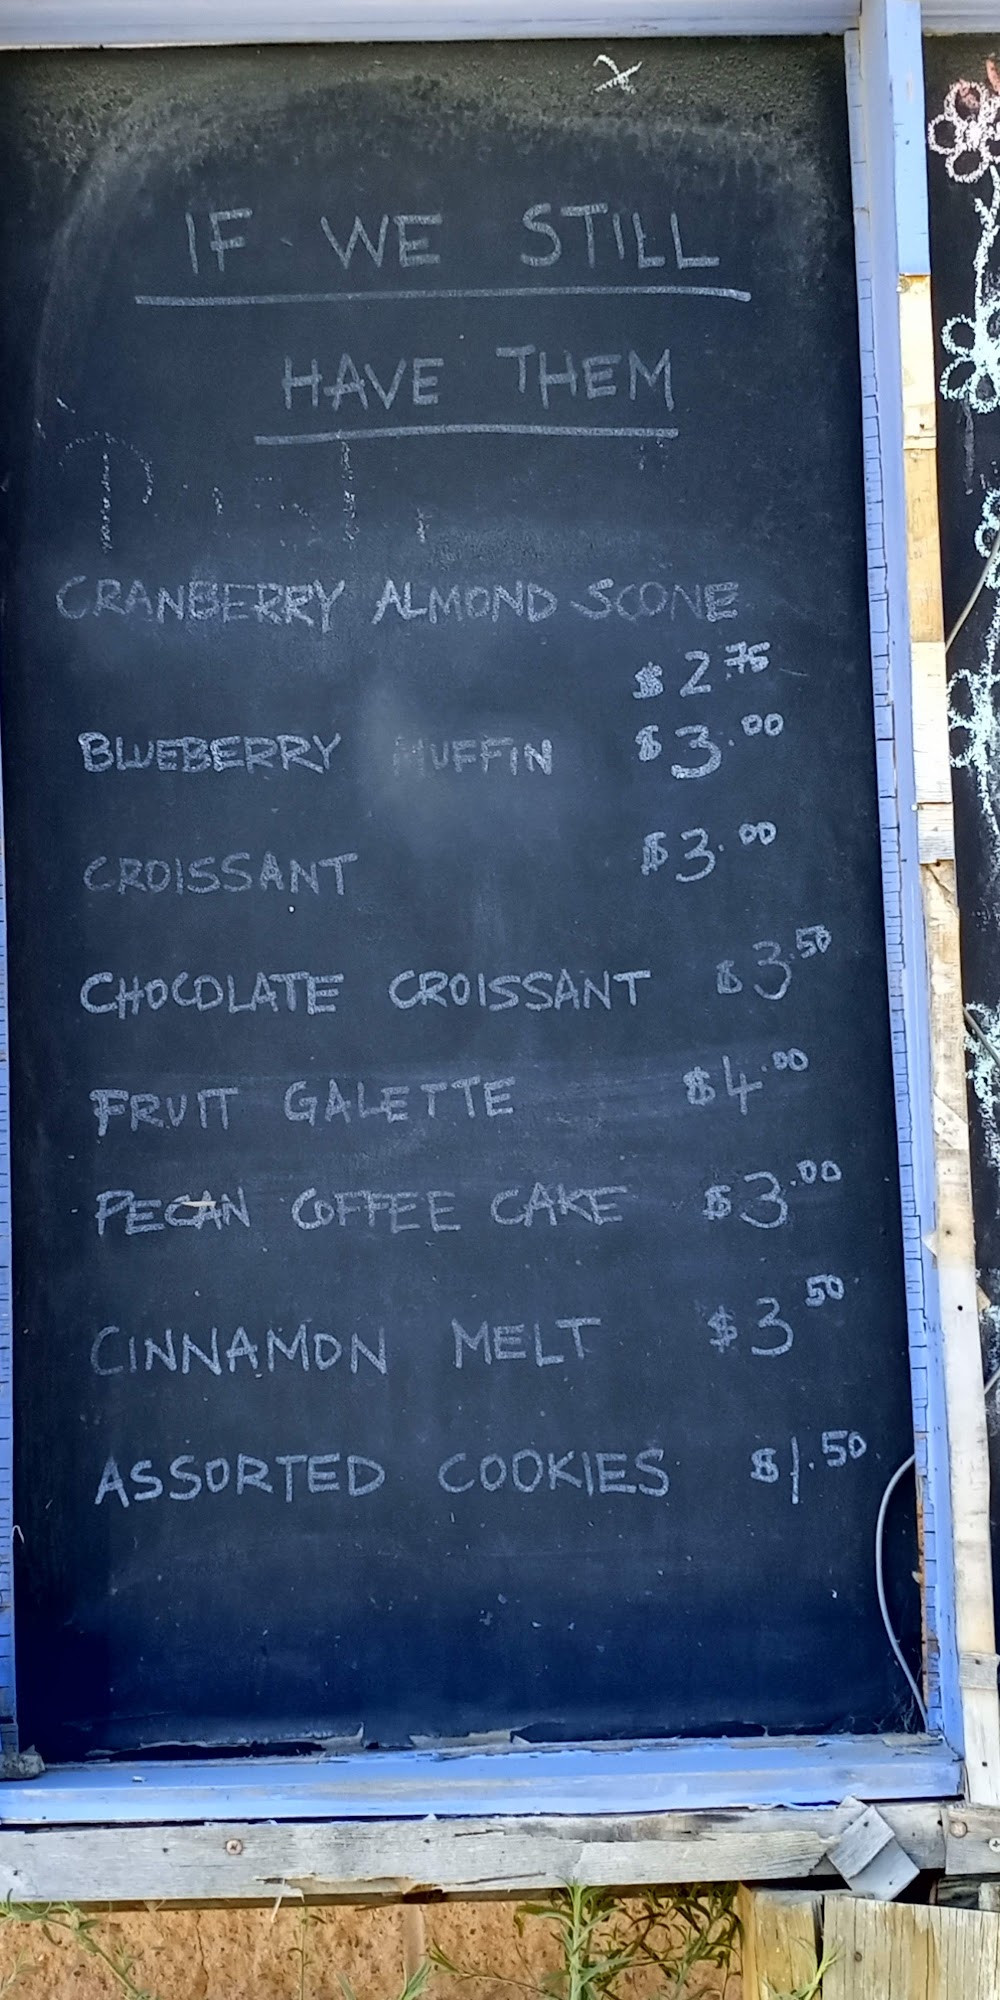 IF WE STILL
HAVE THEM
CRANBERRY ALMOND SCONE
$2.75
BLUEBERRY MUFFIN $3.00
CROISSANT $3.00
CHOCOLATE CROISSANT $3.50
FRUIT GALETTE $4.00
PECAN COFFEE CAKE $3.00
CINNAMON MELT $3 50
ASSORTED COOKIES $1.50